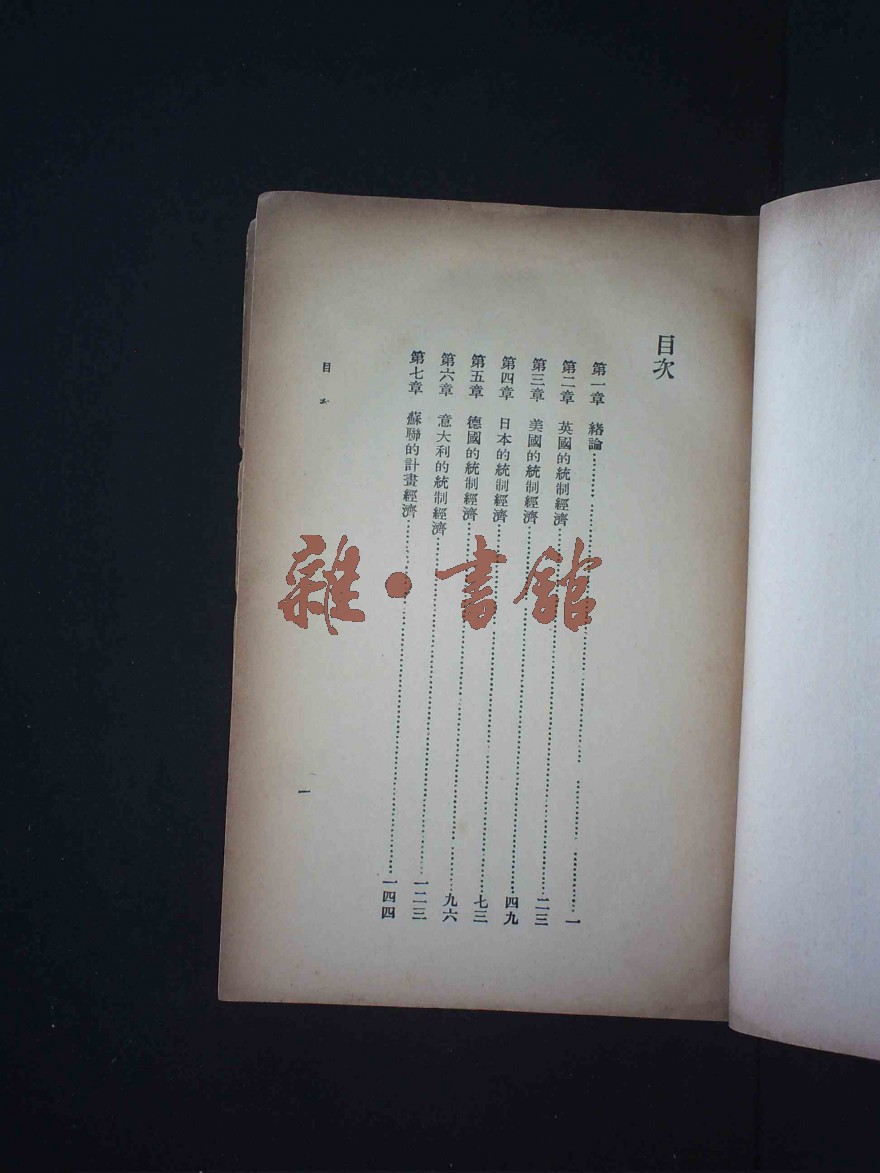 目次
第一章 緒論…………一
第二章 英國的統制經濟…………二三
第三章 美國的統制經濟…………四九
第四章 日本的統制經濟…………七三
第五章 德國的統制經濟…………九六
第六章 意大利的統制經濟…………一二三
第七章 蘇聯的計畫經濟…………一四四
目
一
雜·書館